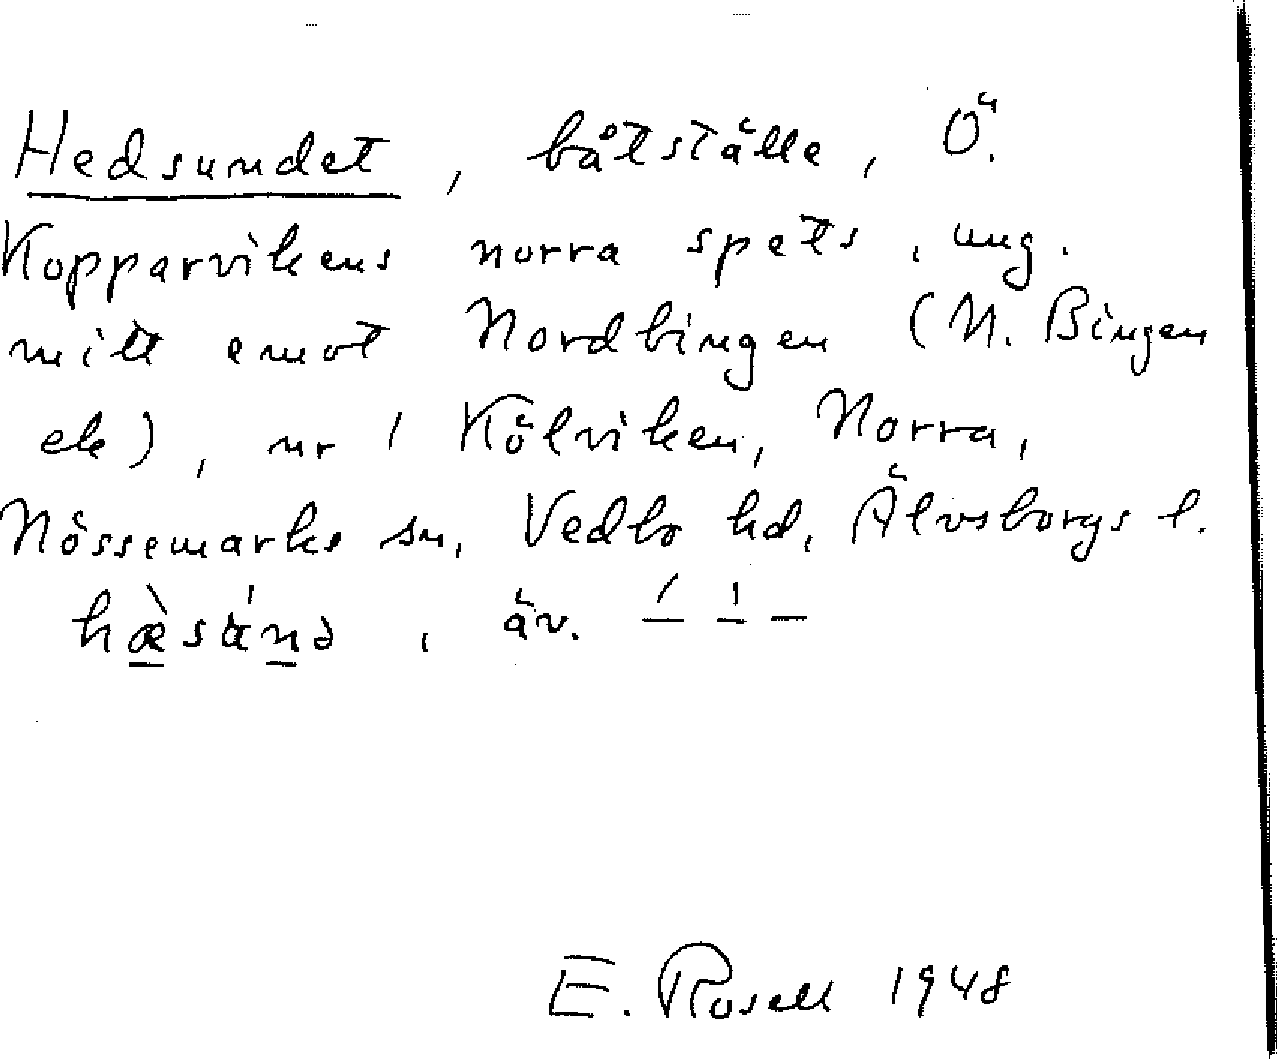 Hedsundet, båtställe, Ö.
Kopparvikens norra spets, ung.
mitt emot Nordbingen (N. Bingen
ek), nr 1 Kölviken, Norra,
Nössemarks sn, Vedbo hd, Älvsborgs l.
äv.
E. Rosell 1948